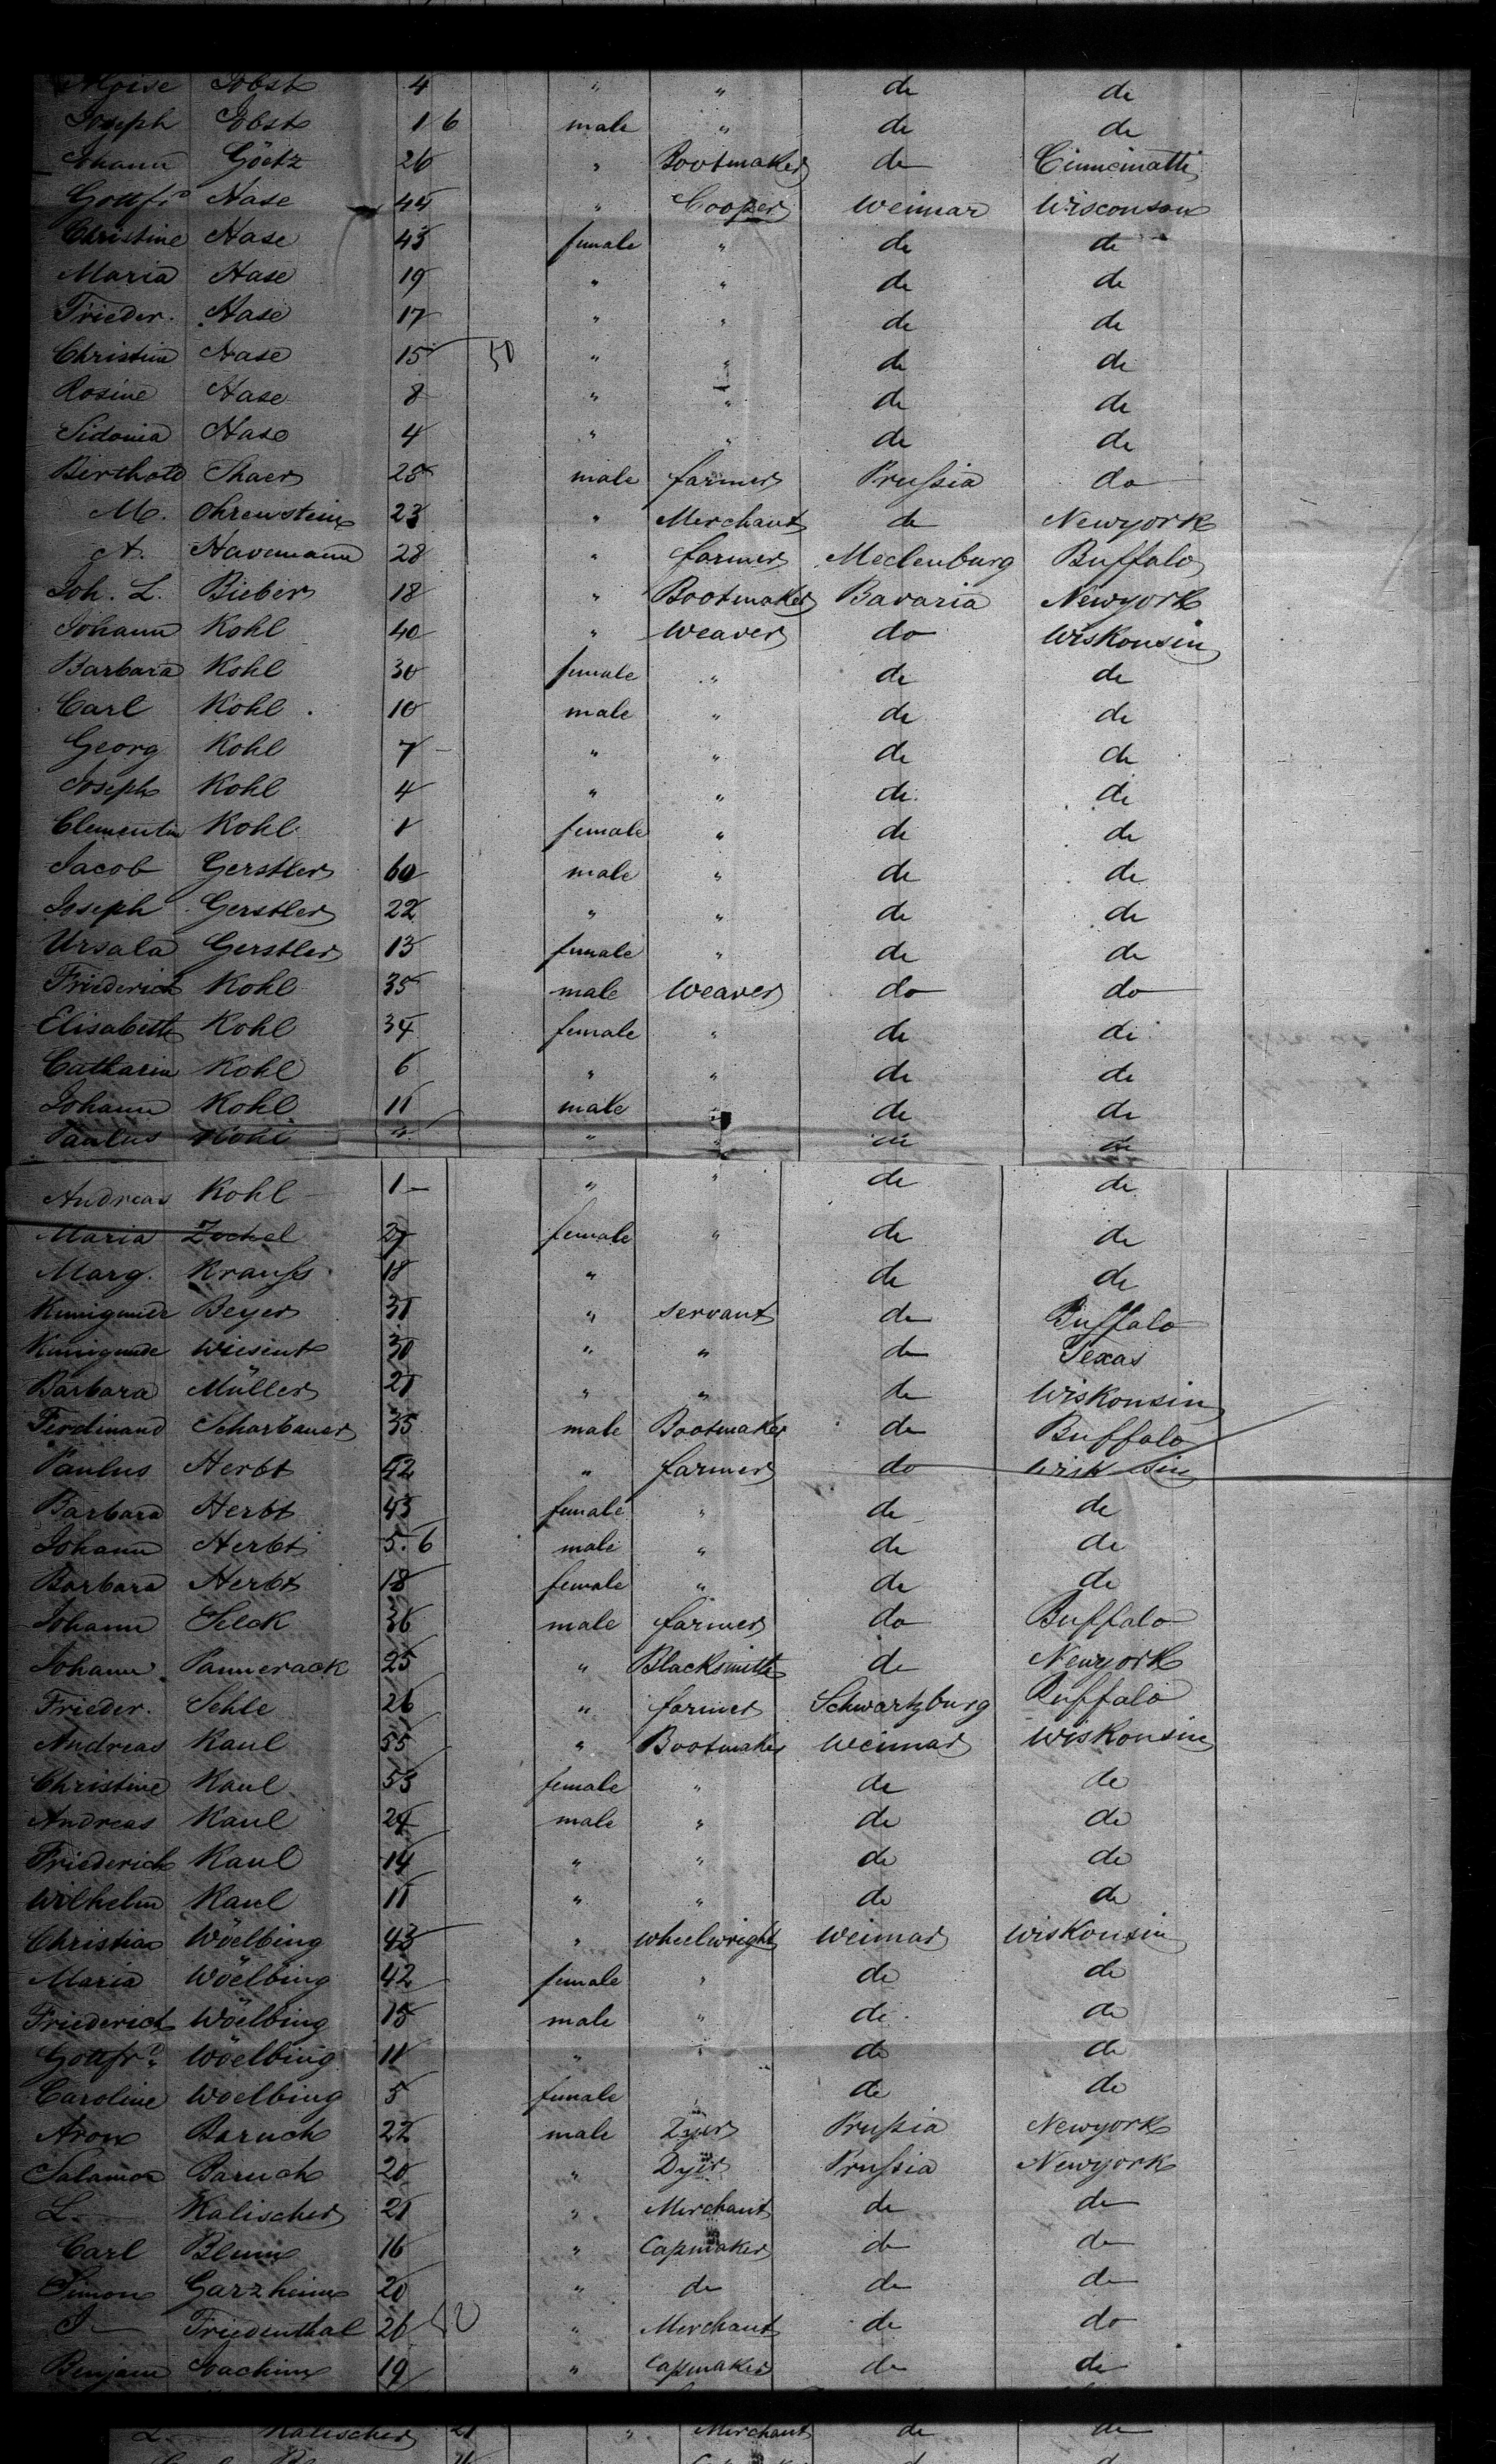 Moise Jobst 4 " " do do
Joseph Jobst 1 6 male " do do
Johann Göetz 26 " Bootmaker do Cinncinatti
Gottfr Hase 44 " Cooper Weimar Wisconson
Christine Hase 43 female " do do
Maria Hase 19 " " do do
Frieder. Hase 17 " " do do
Christin Hase 15 50 " " do do
Rosine Hase 8 " " do do
Sidonia Hase 4 " " do do
Berthold Thaer 25 male farmer Prussia do
M. Ohrenstein 23 " Merchant do Newyork
A. Havemann 28 " farmer Meclenburg Buffalo
Joh. L. Bieber 18 " Bootmaker Bavaria Newyork
Johann Kohl 40 " Weaver do Wiskonsin
Barbara Kohl 30 female " do do
Carl Kohl 10 male " do do
Georg Kohl 7 " " do do
Joseph Kohl 4 " " do do
Clementin Kohl 1 female " do do
Jacob Gerstler 60 male " do do
Joseph Gerstler 22 " " do do
Ursala Gerstler 13 female " do do
Friederich Kohl 35 male Weaver do do
Elisabeth Kohl 34 female " do do
Catharin Kohl 6 " " do do
Johann Kohl 11 male " do do
Paulus Kohl " " do do
Andreas Kohl 1 " " do do
Maria Zockel 27 female " do do
Marg. Krauss 18 " do do
Kunigunde Beyer 31 " servant do Buffalo
Kunigunde Wiesent 30 " " do Texas
Barbara Müller 21 " " do Wiskonsin
Ferdinand Scharbauer 35 male Bootmaker do Buffalo
Paulus Herbt 42 " farmer do Wiskonsin
Barbara Herbt 43 female " do do
Johann Herbt 5. 6 male " do do
Barbara Herbt 18 female " do do
Johann Selck 36 male farmer do Buffalo
Johann Pannerack 25 " Blacksmith do Newyork
Frieder. Sehle 26 " farmer Schwartzburg Buffalo
Andreas Kaul 55 " Bootmaker Weimar Wiskonsin
Christine Kaul 53 female " do do
Andreas Kaul 24 male " do do
Friederich Kaul 14 " " do do
Wilhelm Kaul 11 " " do do
Christian Wöelbing 43 " Wheelwright Weimar Wiskonsin
Maria Wöelbing 42 female " do do
Friederich Wöelbing 15 male " do do
Gottfrd Wöelbing 11 " " do do
Caroline Woelbing 5 female do do
Aron Baruch 22 male Dyer Prussia Newyork
Salamon Baruch 20 " Dyer Prussia Newyork
L. Kalischer 21 " Merchant do do
Carl Blum 16 " Capmaker do do
Simon Garzheim 20 " do do do
J Friedenthal 26 " Merchant do do
Benjam Joachim 19 " Capmaker do do
L. Kalischer 21 " Merchant do do